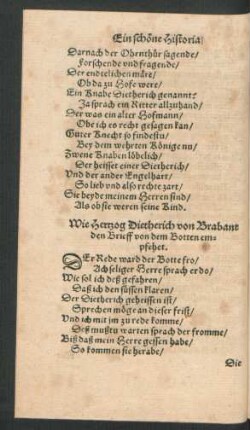 Ein schöne Historia/
Darnach der Obenthür sagende/
Forschende vnd fragende/
Der endtelichen märe/
Ob da zu Hofe were/
Ein Knabe Dietherich genannt?
Ja sprach ein Ritter allzuhand/
Der was ein alter Hofmann/
Obe ich eo recht gesagen kan/
Guter Knecht so findestu/
Bey dem wehrten Könige nu/
Zwene Knaben löbelich/
Der heisset einer Dietherich/
Vnd der ander Engelhart/
So lieb vnd also rechte zart/
Sie beyde meinem Herren sind/
Als ob sie weren seine Kind.
Wie Hertzog Dietherich von Brabant
den Brieff von dem Botten em-
pfehet.
DEr Rede ward der Botte fro/
Ach seliger Herre sprach er do/
Wie sol ich deß gefahren/
Daß ich den süssen klaren/
Der Dietherich geheissen ist/
Sprechen möge an dieser frist/
Vnd ich mit jm zu rede komme/
Deß mußtu warten sprach der fromme/
Biß daß mein Herre gessen habe/
So kommen sie herabe/
Die